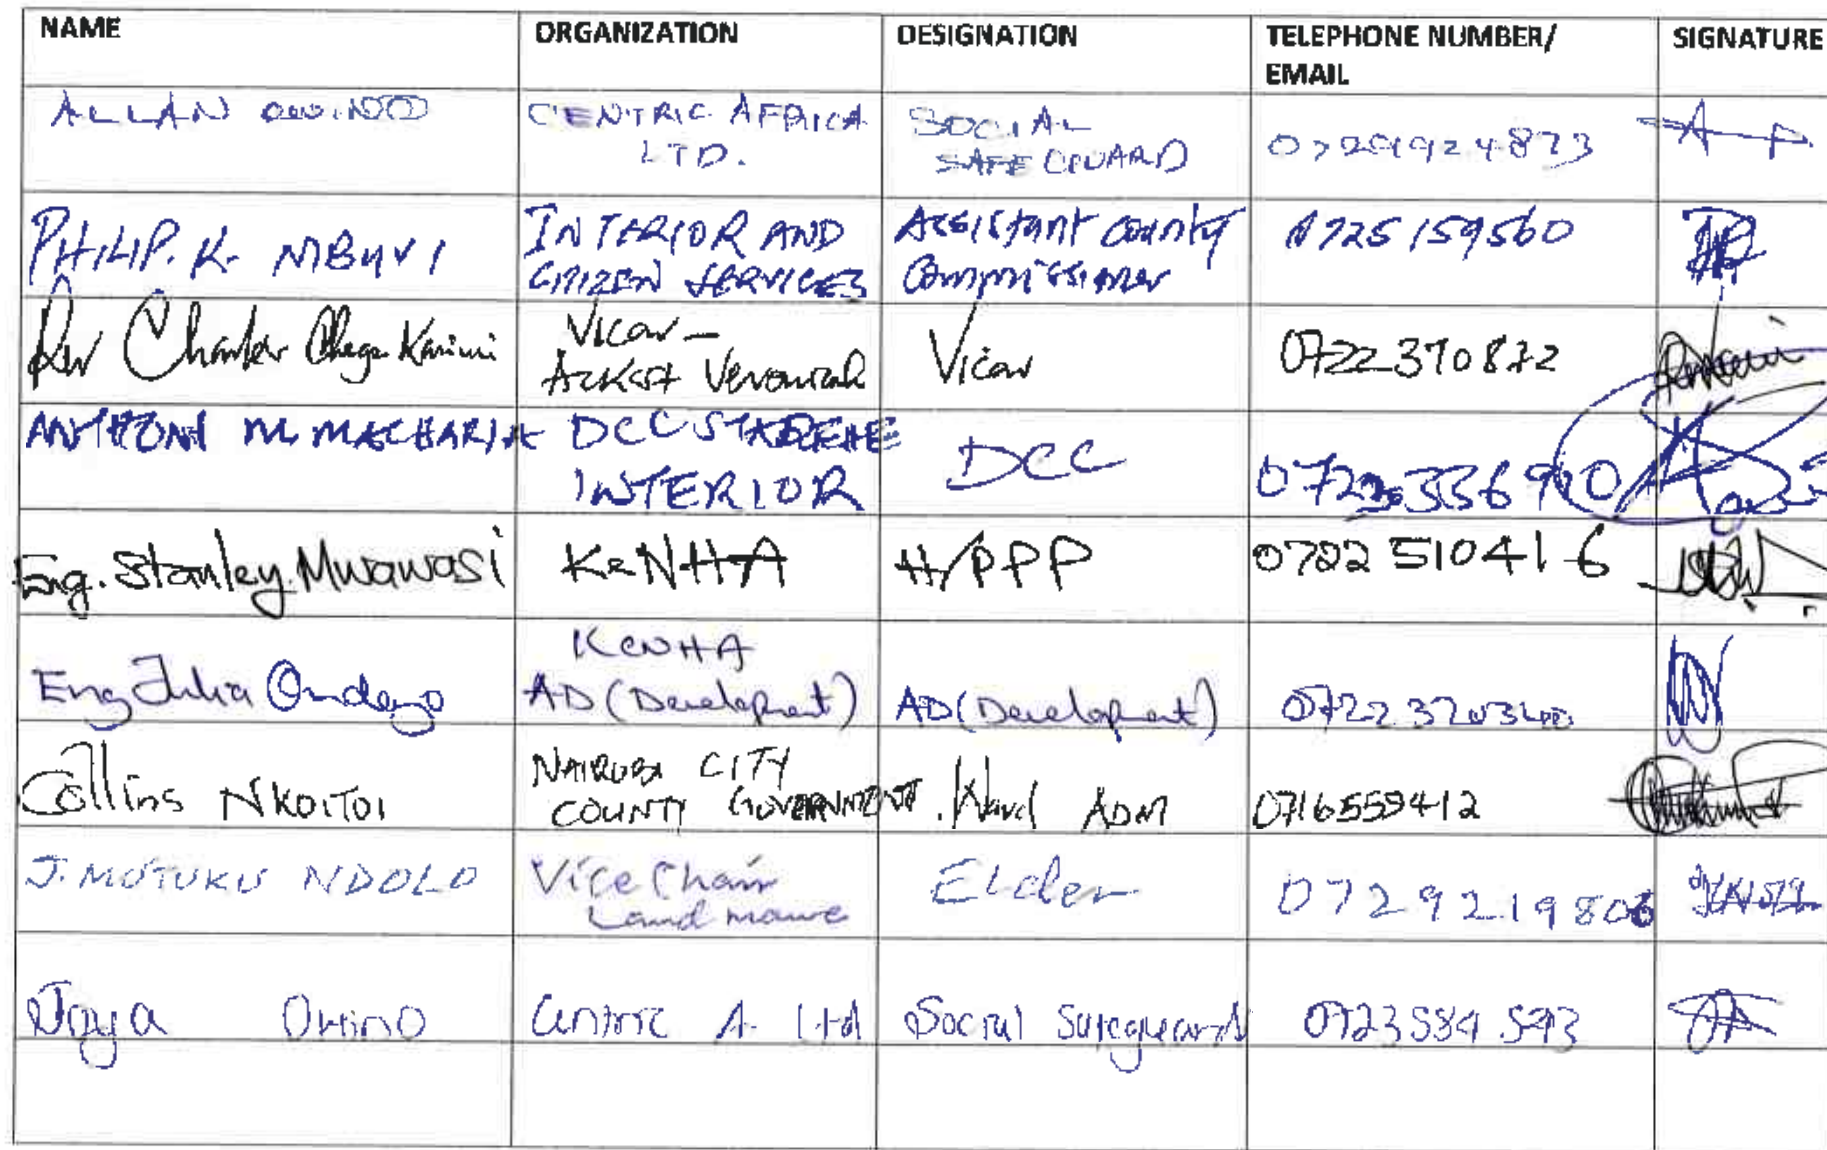 NAME ORGANIZATION DESIGNATION TELEPHONE NUMBER/ EMAIL SIGNATURE
ALLAN OWINO CENTRIC AFRICA LTD. SOCIAL SAFEGUARD
PHILIP. K. MBUVI INTERIOR AND CITIZEN SERVICES Assistant County Commissioner 0725159560
Rev Charles Chege Karimi Vicar - Vicar 0722370872
ANTHONY M. MACHARIA DCC STAREHE INTERIOR DCC
Eng. Stanley Mwawasi KeNHA H/PPP 0722510416
Eng Julia Ondego KeNHA AD (Development) AD (Development)
Collins NKOITOI NAIROBI CITY COUNTY GOVERNMENT. Ward ADM 0716559412
J. MUTUKU NDOLO Vice Chair Land mawe Elder 0729219806
Joya Otieno Centric A. Ltd Social Safeguards 0723584593